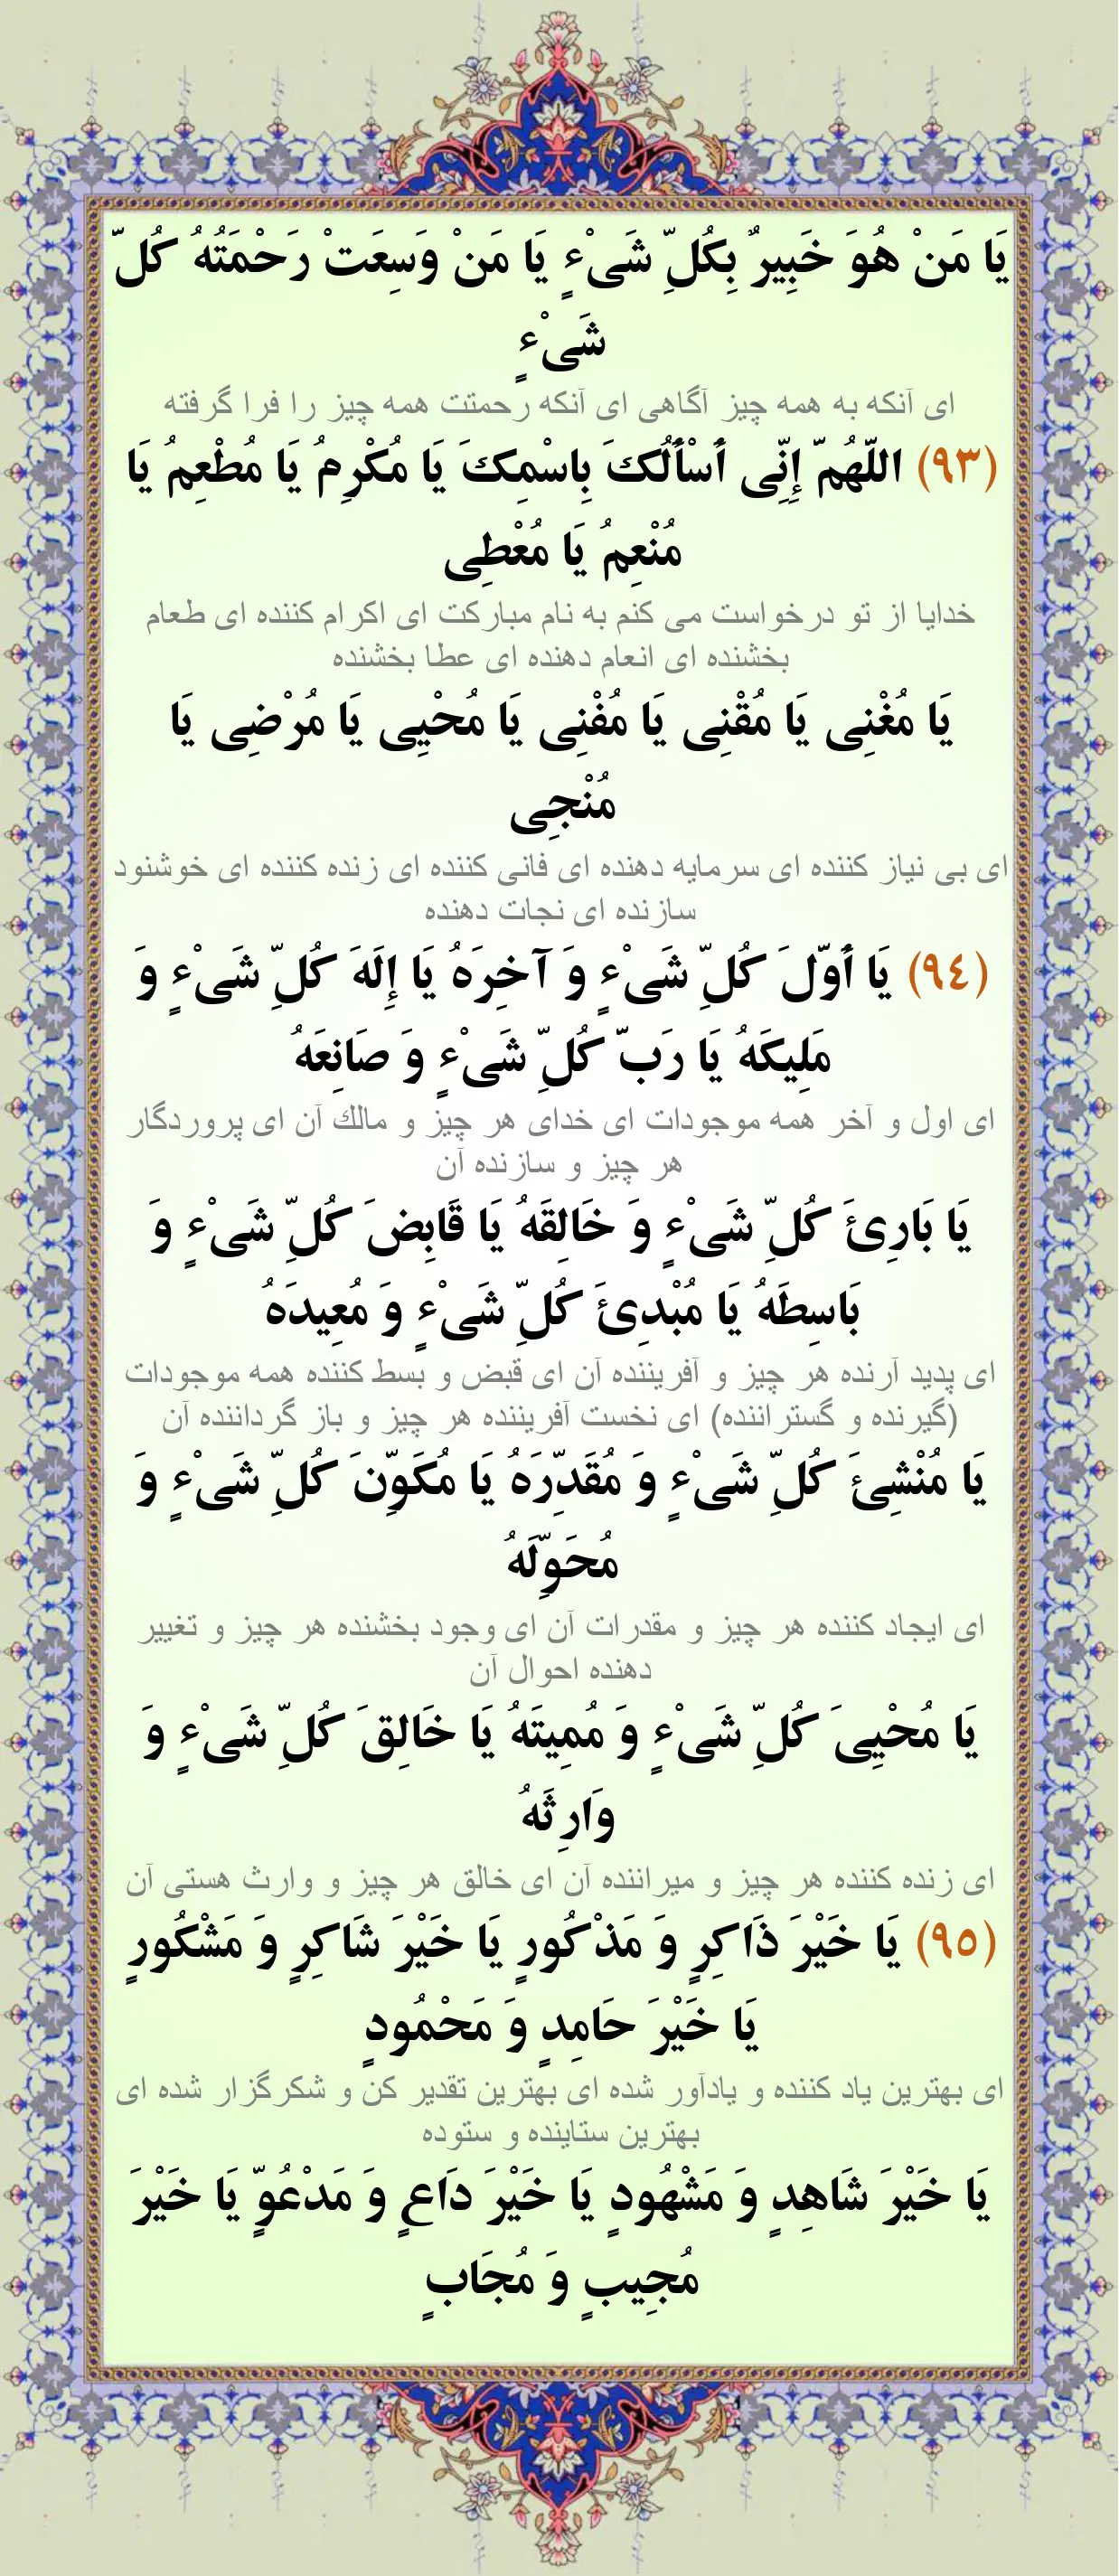 يَا مَنْ هُوَ خَبِيرٌ بِكُلِّ شَیْءٍ يَا مَنْ وَسِعَتْ رَحْمَتُهُ كُلّ
شَیْءٍ
ای آنكه به همه چیز آگاهی ای آنكه رحمتت همه چیز را فرا گرفته
(٩٣) اللّهُمّ إِنِّی أَسْأَلُكَ بِاسْمِكَ يَا مُكْرِمُ يَا مُطْعِمُ يَا
مُنْعِمُ يَا مُعْطِی
خدایا از تو درخواست می كنم به نام مباركت ای اكرام كننده ای طعام
بخشنده ای انعام دهنده ای عطا بخشنده
يَا مُغْنِی يَا مُقْنِی يَا مُفْنِی يَا مُحْيِی يَا مُرْضِی يَا
مُنْجِی
ای بی نیاز كننده ای سرمایه دهنده ای فانی كننده ای زنده كننده ای خوشنود
سازنده ای نجات دهنده
(٩٤) يَا أَوّلَ كُلِّ شَیْءٍ وَ آخِرَهُ يَا إِلَهَ كُلِّ شَیْءٍ وَ
مَلِيكَهُ يَا رَبّ كُلِّ شَیْءٍ وَ صَانِعَهُ
ای اول و آخر همه موجودات ای خدای هر چیز و مالك آن ای پروردگار
هر چیز و سازنده آن
يَا بَارِئَ كُلِّ شَیْءٍ وَ خَالِقَهُ يَا قَابِضَ كُلِّ شَیْءٍ وَ
بَاسِطَهُ يَا مُبْدِئَ كُلِّ شَیْءٍ وَ مُعِيدَهُ
ای پدید آرنده هر چیز و آفریننده آن ای قبض و بسط كننده همه موجودات
(گیرنده و گستراننده) ای نخست آفریننده هر چیز و باز گرداننده آن
يَا مُنْشِئَ كُلِّ شَیْءٍ وَ مُقَدِّرَهُ يَا مُكَوِّنَ كُلِّ شَیْءٍ وَ
مُحَوِّلَهُ
ای ایجاد كننده هر چیز و مقدرات آن ای وجود بخشنده هر چیز و تغییر
دهنده احوال آن
يَا مُحْيِیَ كُلِّ شَیْءٍ وَ مُمِيتَهُ يَا خَالِقَ كُلِّ شَیْءٍ وَ
وَارِثَهُ
ای زنده كننده هر چیز و میراننده آن ای خالق هر چیز و وارث هستی آن
(٩٥) يَا خَيْرَ ذَاكِرٍ وَ مَذْكُورٍ يَا خَيْرَ شَاكِرٍ وَ مَشْكُورٍ
يَا خَيْرَ حَامِدٍ وَ مَحْمُودٍ
ای بهترین یاد كننده و یادآور شده ای بهترین تقدیر كن و شكرگزار شده ای
بهترین ستاینده و ستوده
يَا خَيْرَ شَاهِدٍ وَ مَشْهُودٍ يَا خَيْرَ دَاعٍ وَ مَدْعُوٍّ يَا خَيْرَ
مُجِيبٍ وَ مُجَابٍ